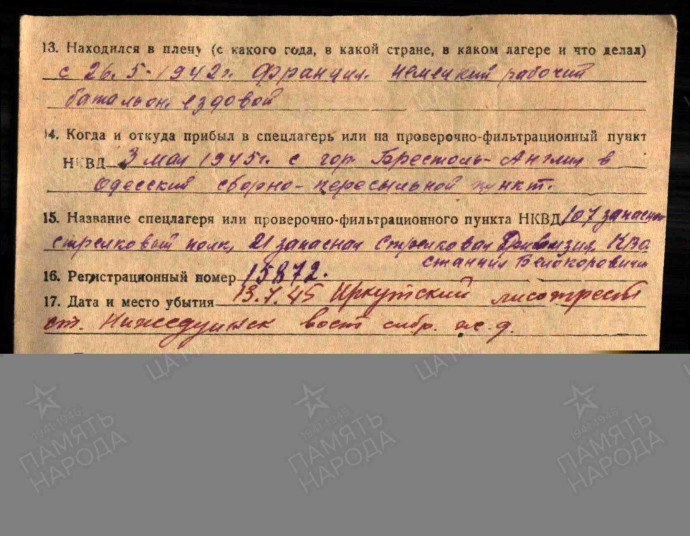 13. Находился в плену (с какого года, в какой стране, в каком лагере и что делал)
с 26.5-1942г. Франция. немецкий рабочий
батальон, ездовой
14. Когда и откуда прибыл в спецлагерь или на проверочно-фильтрационный пункт
НКВД 3 мая 1945г. с гор. Брестоль-Англия в
Одесский сборно-пересыльной пункт.
15. Название спецлагеря или проверочно-фильтрационного пункта НКВД 107 запасной
стрелковый полк, 21 запасная стрелковая Дивизия, КВО
станция Белокоровичи
16. Регистрационный номер 15872.
17. Дата и место убытия 13.7.45 Иркутский
ст. Нижнеудинск вост сибр. ж.д.
ПАМЯТЬ
НАРОДА
ПАМЯТЬ
НАРОДА
ПАМЯТЬ
НАРОДА